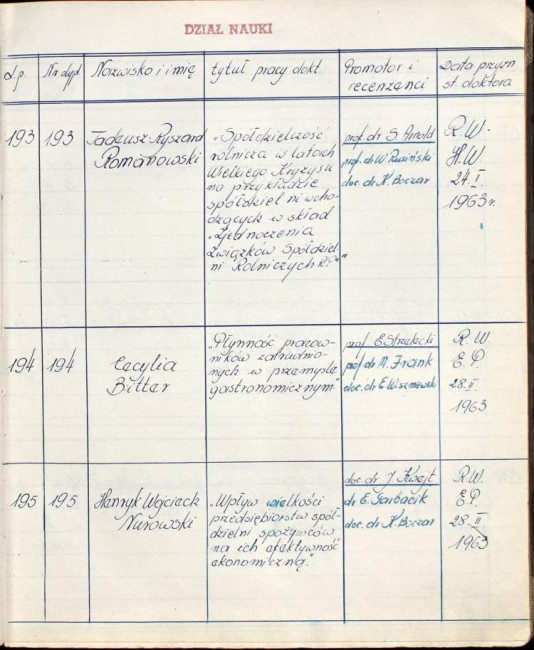 DZIAŁ NAUKI
L.p.
Nr dypl.
Nazwisko i imię
tytuł pracy dokt.
Promotor i
recenzenci
Data przyzn
st. doktora
193
193
Tadeusz-Ryszard
Romanowski
"Spółdzielczość
rolnicza w latach
Wielkiego Kryzysu
na przykładzie
spółdzielni wcho-
dzących w skład
"Zjednoczenia
Związków Spółdziel-
ni Rolniczych R.P.""
prof. dr S. Arnold
prof. dr W. Rusiński
doc. dr K. Boczar
R. W.
H. W
24. I.
1963 r.
194
194
Cecylia
Bitter
"Płynność pracow-
ników zatrudnio-
nych w przemyśle
gastronomicznym"
prof. E. Strzelecki
prof. dr M. Frank
doc. dr E. Wiszniewski
R. W
E. P.
28. II.
1963
195
195
Henryk Wojciech
Nurowski
"Wpływ wielkości
przedsiębiorstw spół-
dzielni spożywców
na ich efektywność
ekonomiczną."
doc. dr J. Kwejt
dr E. Garbacik
doc. dr K. Boczar
R. W.
E P
28. II
1963